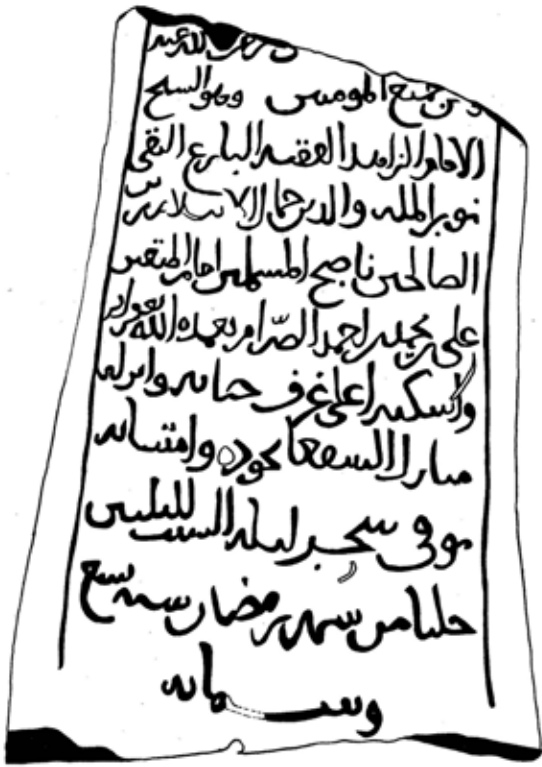 رضى الله عنه
وعن جميع المومنين وهو الشيخ
الامام الزاهد الفقيه البارع التقى
نور المله والدين جمال الاسلام زين
الصالحين ناصح المسلمين امام المتقين
على بن محمد بن احمد الصرّام تغمده الله
واسكنه اعلى غرف جنانه وانزله
منازل الشفعا بجوده وامتنانه
توفى سحر ليله السبت لليلتين
خلتا من شهر رمضان سنه سبع
وستمايه